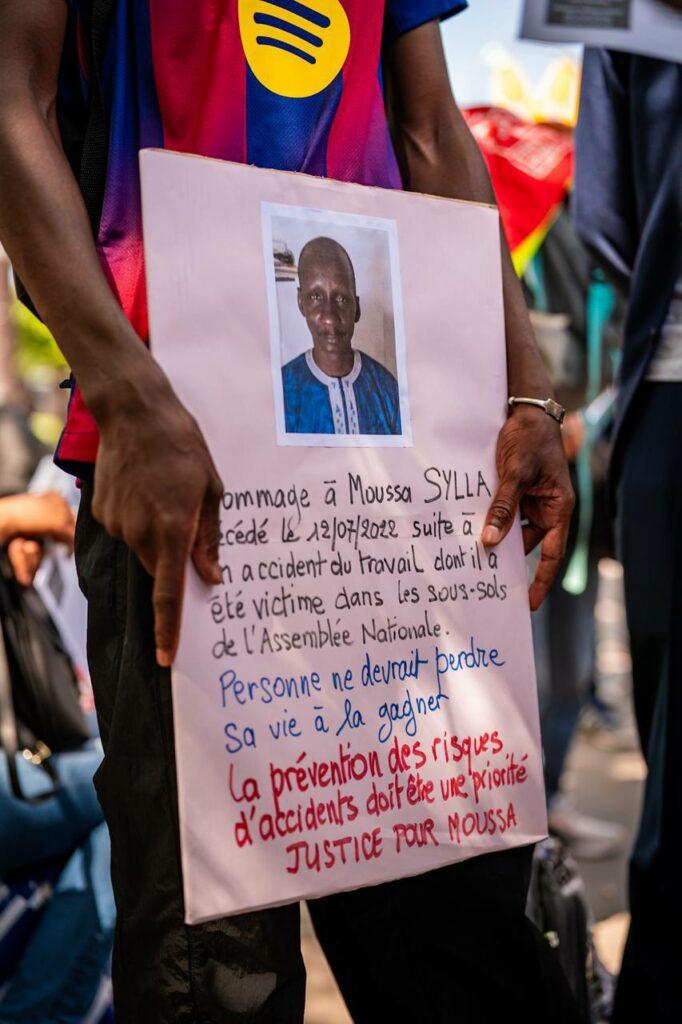 ommage à Moussa SYLLA
écédé le 12/07/2022 suite à
n accident du travail dont il a
été victime dans les sous-sols
de l'Assemblée Nationale.
Personne ne devrait perdre
sa vie à la gagner
La prévention des risques
d'accidents doit être une priorité
JUSTICE POUR MOUSSA